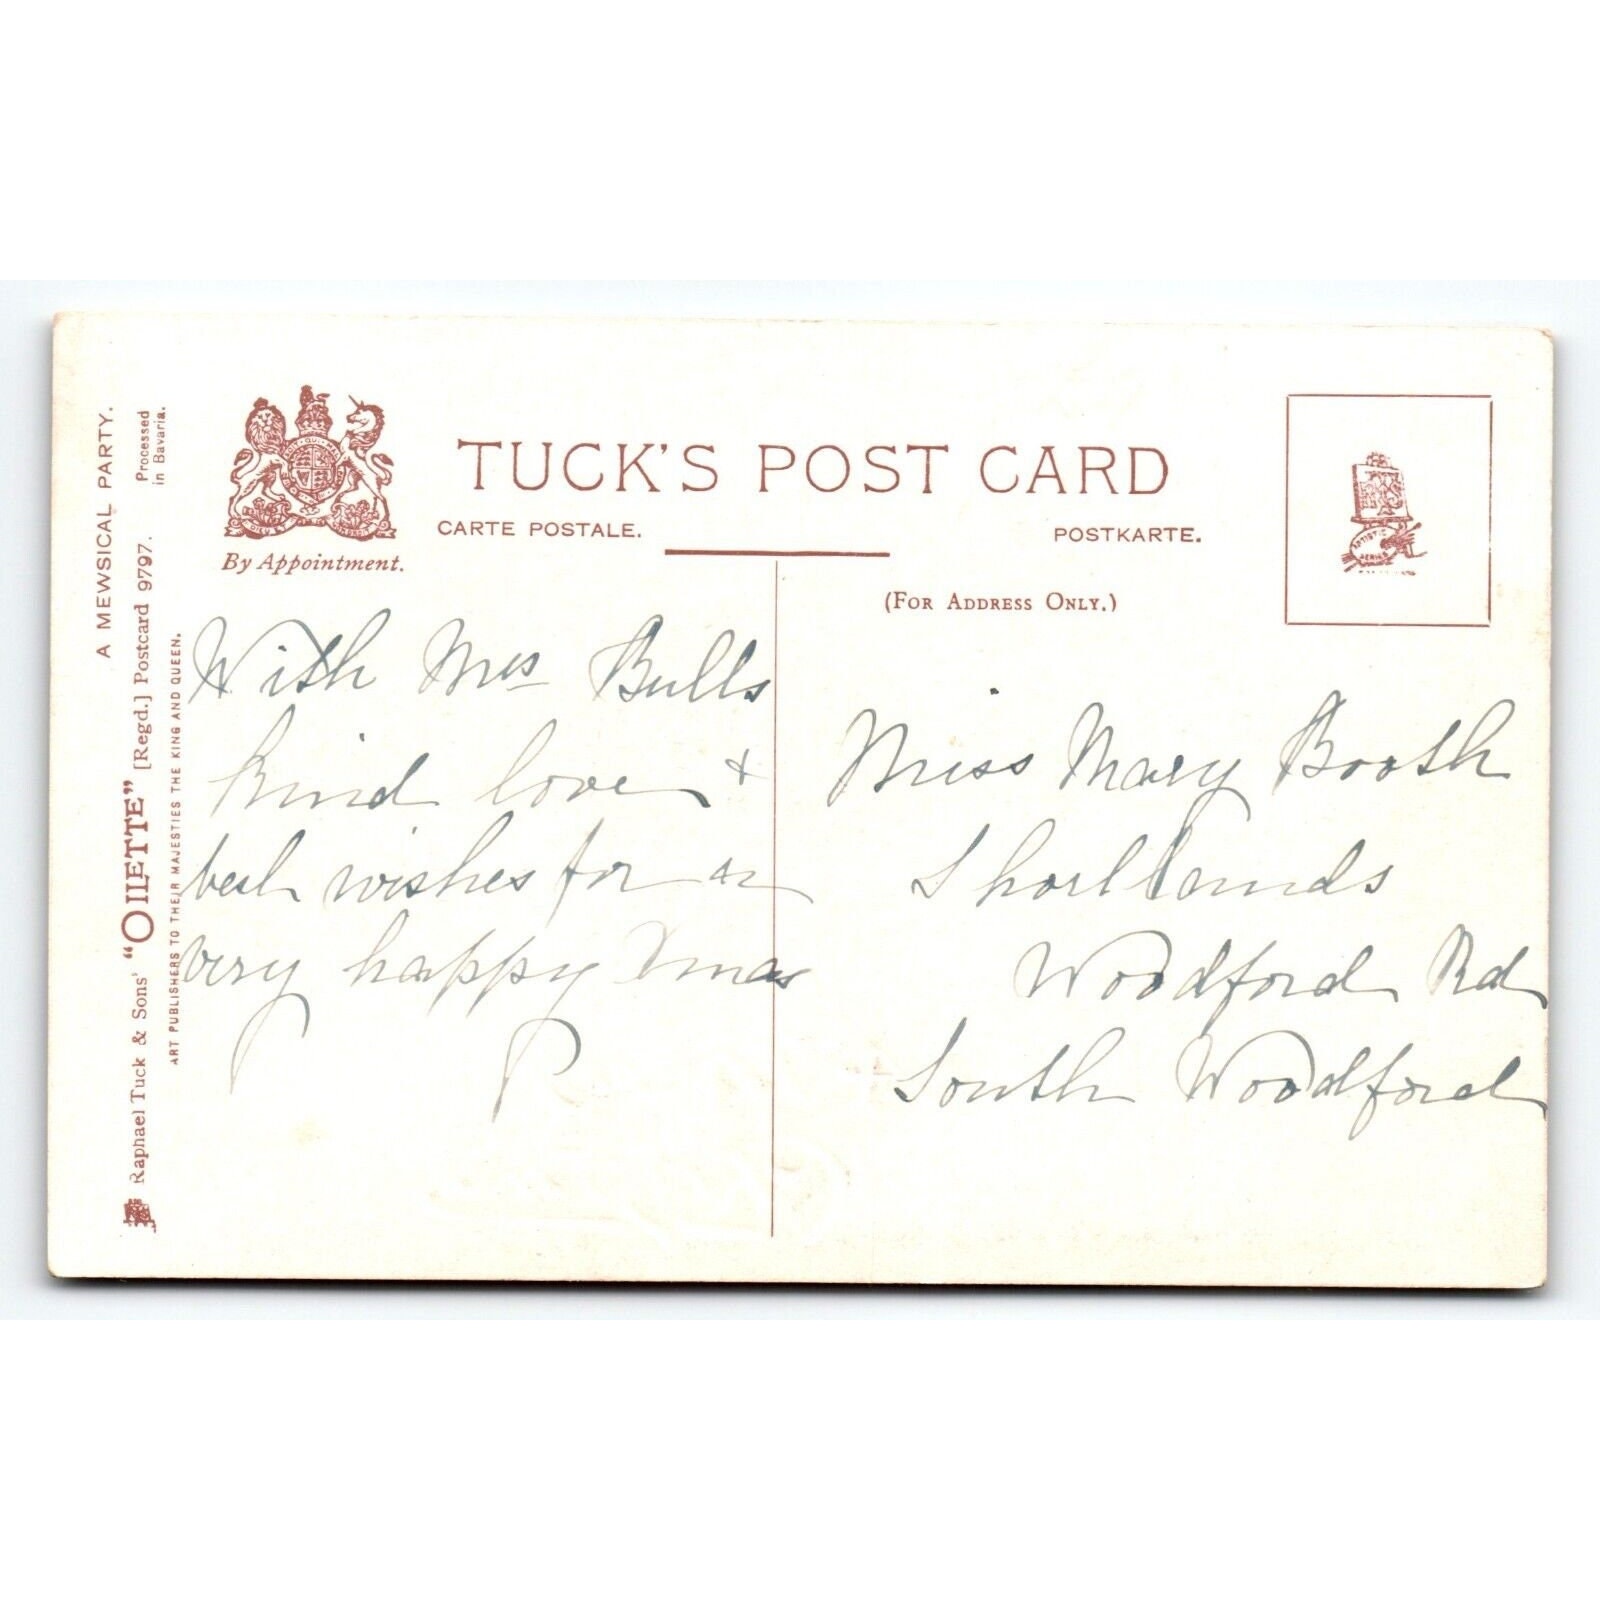 A MEWSICAL PARTY.
Processed
in Bavaria.
Raphael Tuck & Sons' "OILETTE" [Regd.] Postcard 9797.
ART PUBLISHERS TO THEIR MAJESTIES THE KING AND QUEEN.
By Appointment.
TUCK'S POST CARD
CARTE POSTALE.
POSTKARTE.
(FOR ADDRESS ONLY.)
ARTISTIC
SERIES
With Mrs Bulls
kind love +
best wishes for a
very happy Xmas
Miss Mary Booth
Shortlands
Woodford Rd
South Woodford